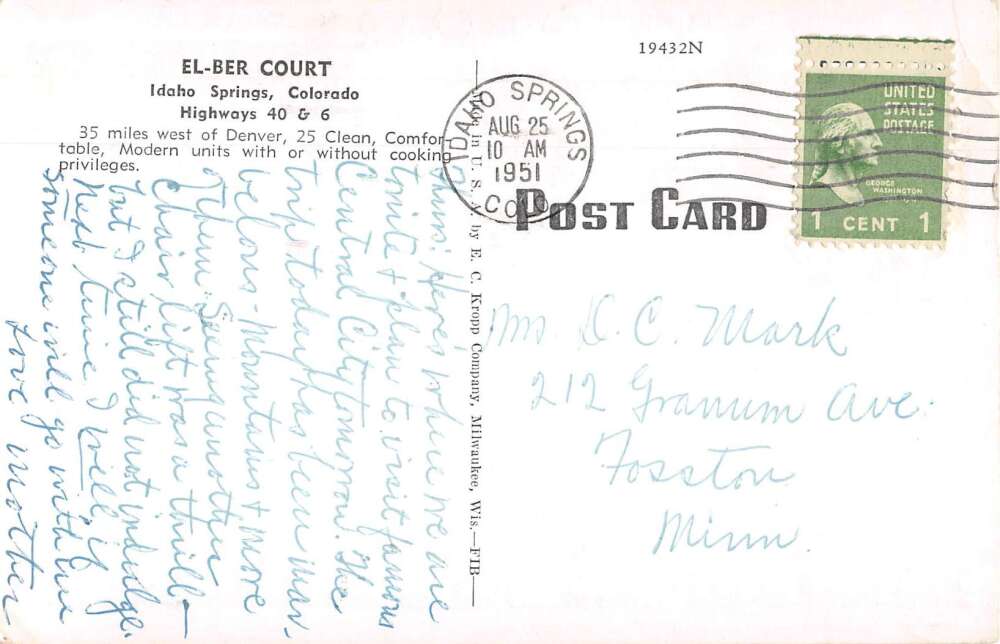 EL-BER COURT
Idaho Springs, Colorado
Highways 40 & 6
35 miles west of Denver, 25 Clean, Comfor-
table, Modern units with or without cooking
privileges.
Here's where we are
tonite & plan to visit famous
Central City tomorrow. The
trip today has been mar-
velous - Mountains & more
of them. Seeing another
Chair lift was a thrill -
but I still did not indulge.
Next time I will, if
someone will go with me
Love Mother
Made in U. S. A. by E. C. Kropp Company, Milwaukee, Wis.—FIB
19432N
IDAHO SPRINGS
AUG 25
10 AM
1951
COLO
POST CARD
UNITED
STATES
POSTAGE
GEORGE
WASHINGTON
1 CENT 1
Mrs D. C. Mark
212 Granum Ave.
Fosston
Minn.